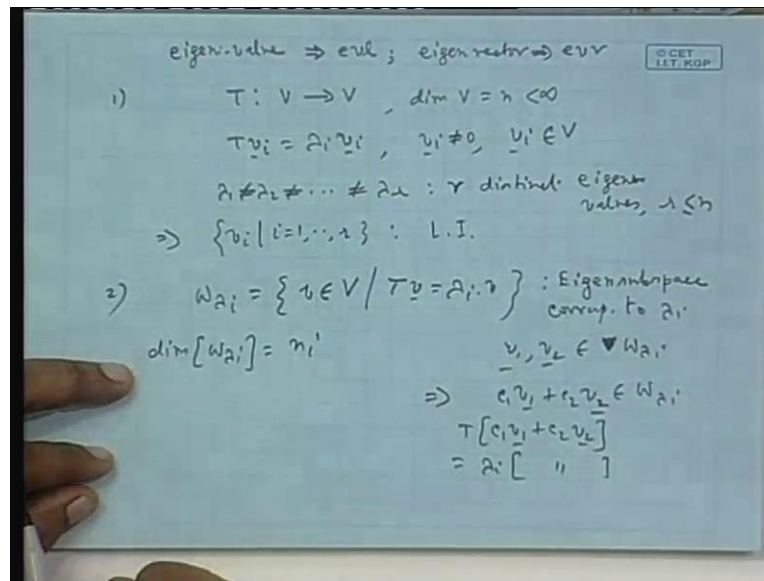 eigen-value ⇒ evl ; eigen vector ⇒ evr
© CET
I.I.T. KGP
1) T : V → V , dim V = n < ∞
T v_i = λ_i v_i , v_i ≠ 0, v_i ∈ V
λ_1 ≠ λ_2 ≠ ... ≠ λ_r : r distinct eigen
values, r ≤ n
⇒ {v_i | i=1,..,r} : L.I.
2) W_{λ_i} = { v ∈ V / T v = λ_i . v } : Eigensubspace
corresp. to λ_i
dim [W_{λ_i}] = n_i
v_1, v_2 ∈ W_{λ_i}
⇒ c_1 v_1 + c_2 v_2 ∈ W_{λ_i}
T [c_1 v_1 + c_2 v_2]
= λ_i [ " ]